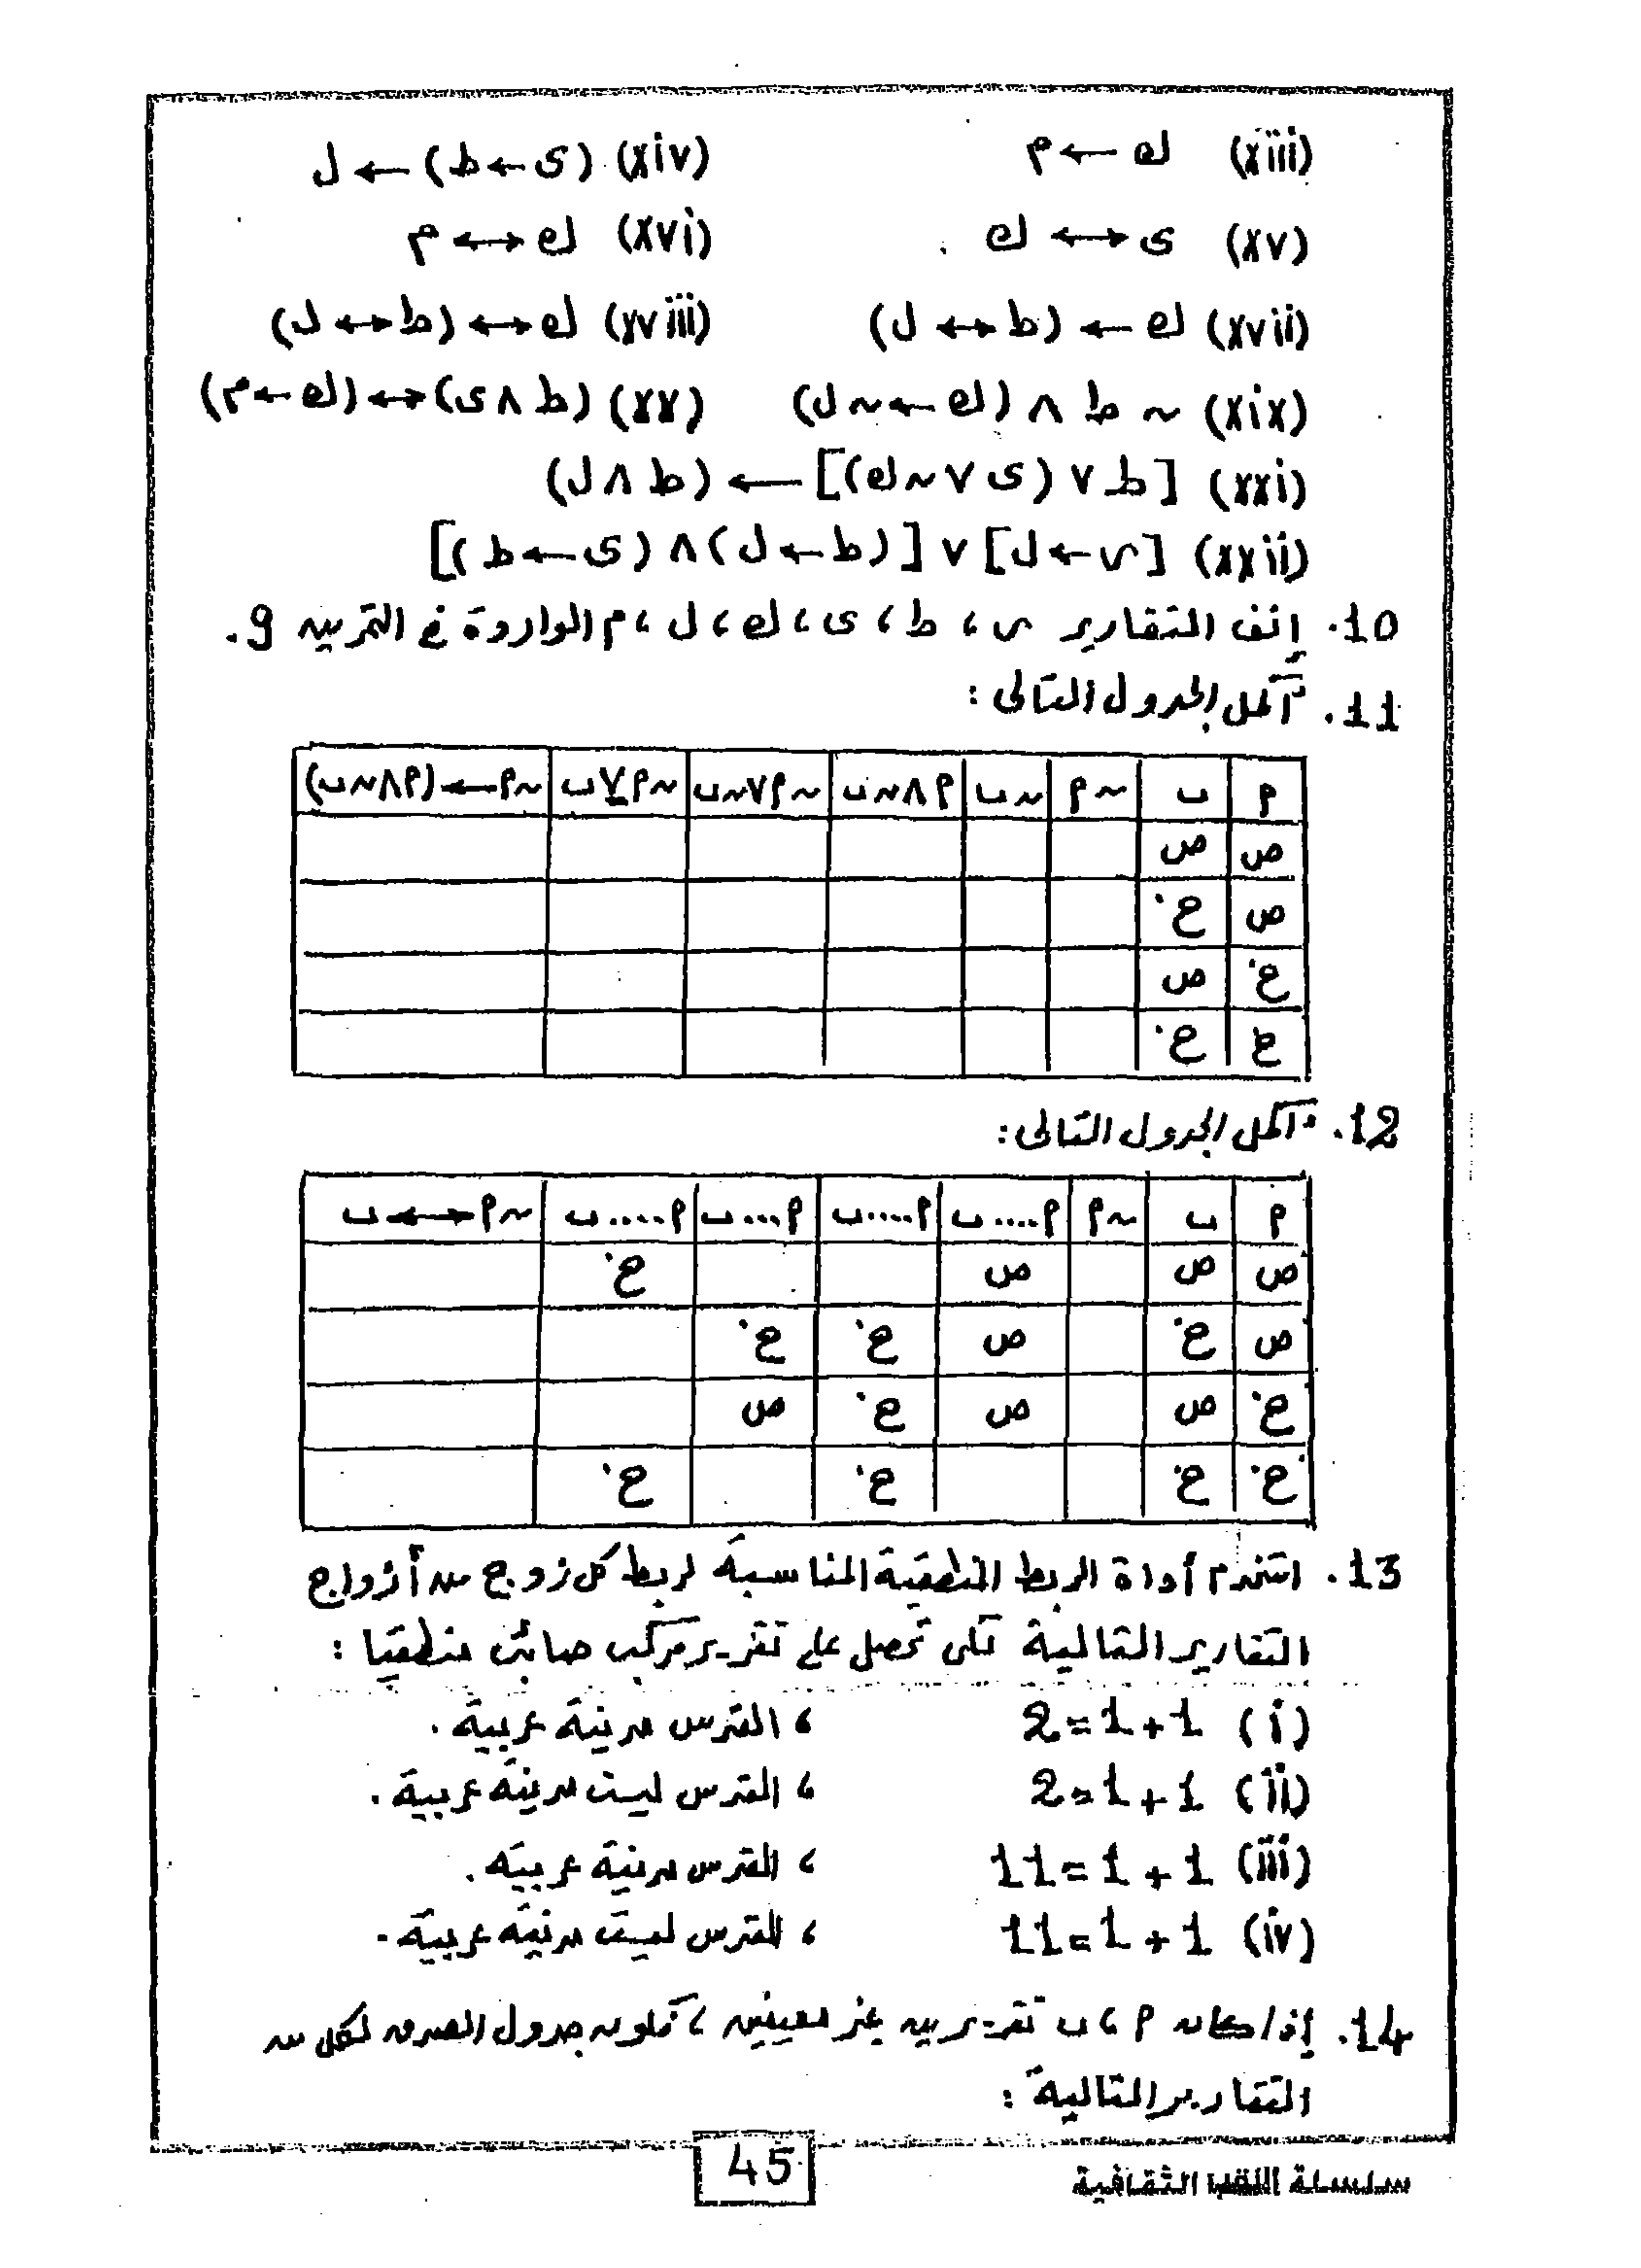 (xiii) ك ← م (xiv) (ى ← ط) ← ل
(xv) ى ↔ ك (xvi) ك ↔ م
(xvii) ك ← (ط ↔ ل) (xviii) ك ↔ (ط ↔ ل)
(xix) ~ ط ∧ (ك ← ~ ل) (xx) (ط ∧ ى) ↔ (ك ← م)
(xxi) [ط ∨ (ى ∨ ~ ك)] ← (ط ∧ ل)
(xxii) [س ← ل] ∨ [(ط ← ل) ∧ (ى ← ط)]
10. إنف التقارير س، ط، ى، ك، ل، م الواردة في التمرين 9.
11. أكمل الجدول التالى:
م ب ~م ~ب م∧~ب ~م∨~ب ~م⊻ب ~م ← (م∧~ب)
ص ص
ص خ
خ ص
خ خ
12. أكمل الجدول التالى:
م ب ~م م....ب م....ب م...ب م....ب ~م ↔ ب
ص ص ص خ
ص خ ص خ خ
خ ص ص خ ص
خ خ خ خ
13. استخدم أداة الربط المنطقية المناسبة لربط كل زوج من أزواج
التقارير التالية لكى تحصل على تقرير مركب صائب منطقيا:
(i) 1+1=2 ، القدس مدينة عربية.
(ii) 1+1=2 ، القدس ليست مدينة عربية.
(iii) 1+1=11 ، القدس مدينة عربية.
(iv) 1+1=11 ، القدس ليست مدينة عربية.
14. إذا كان م، ب تقريرين غير معينين، كون جدول الصدق لكل من
التقارير التالية:
45
سلسلة الثقافية